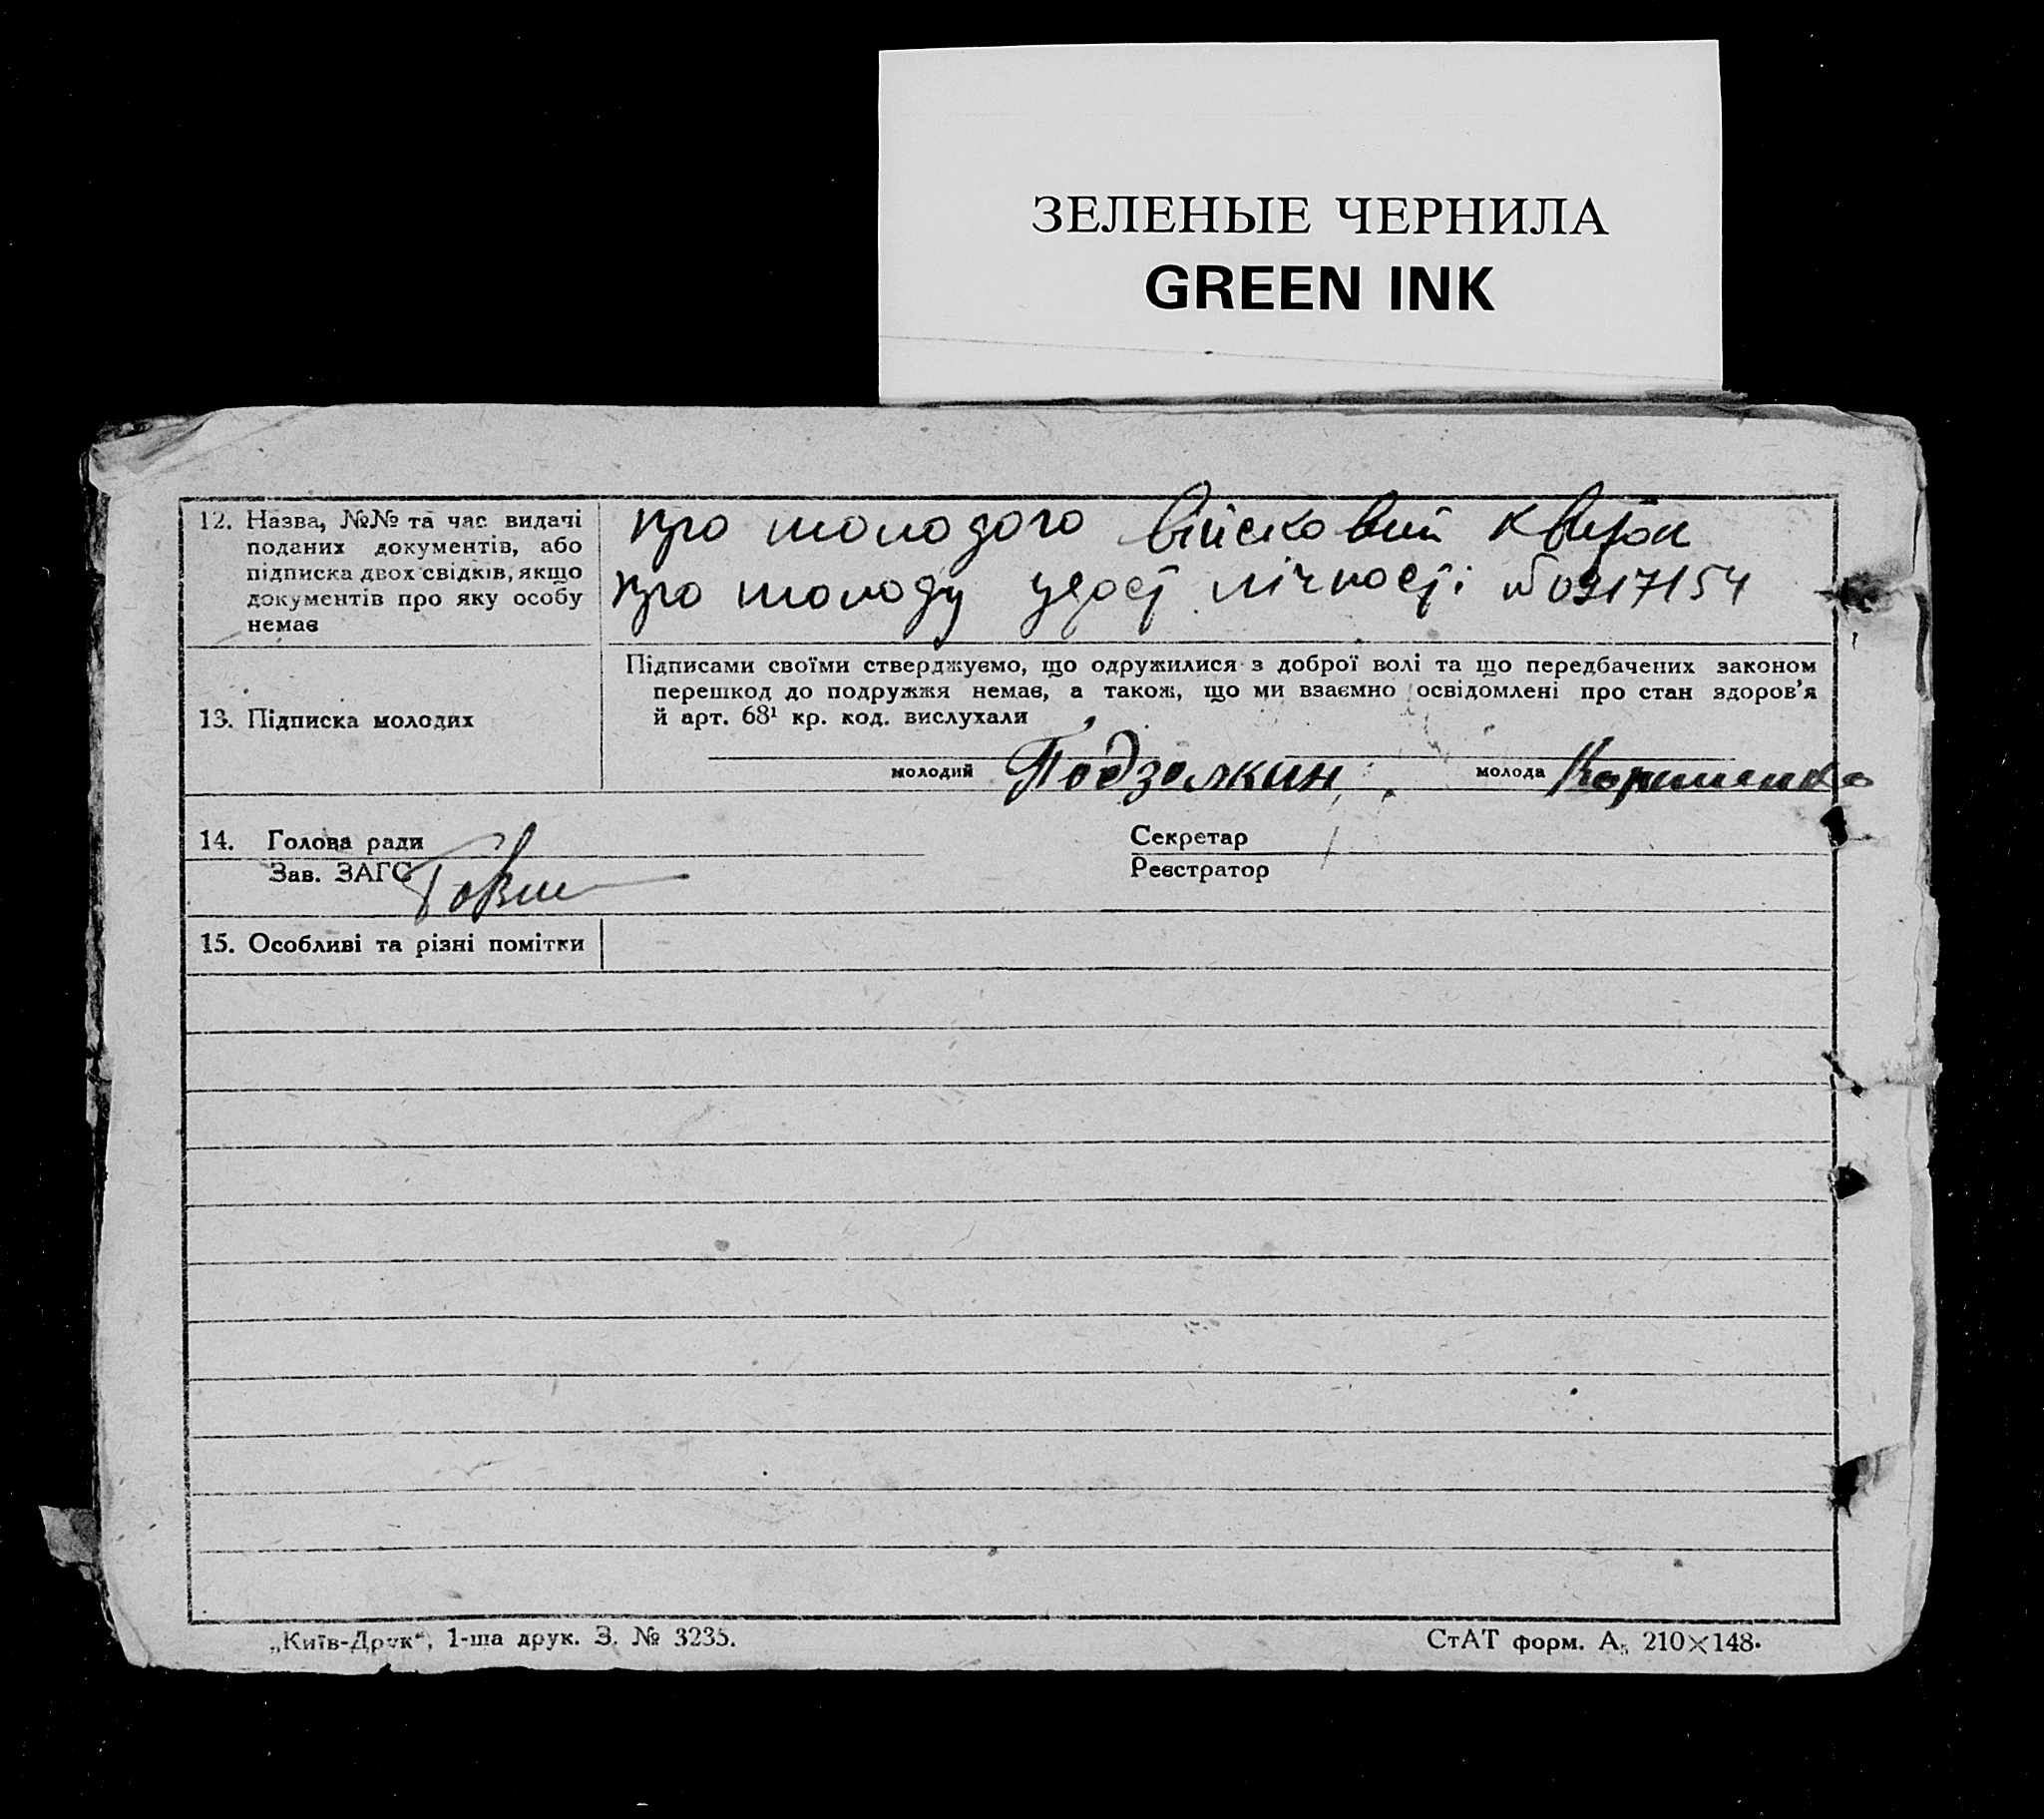 ЗЕЛЕНЫЕ ЧЕРНИЛА
GREEN INK
12. Назва, №№ та час видачі
поданих документів, або
підписка двох свідків, якщо
документів про яку особу
немає
про молодого військовий квиток
про молоду удост лічності №0917154
Підписами своїми стверджуємо, що одружилися з доброї волі та що передбачених законом
перешкод до подружжя немає, а також, що ми взаємно освідомлені про стан здоров'я
й арт. 68¹ кр. код. вислухали
13. Підписка молодих
молодий Подзолкин молода
14. Голова ради Секретар
Зав. ЗАГС Реєстратор
15. Особливі та різні помітки
„Київ-Друк“, 1-ша друк. З. № 3235.
СтАТ форм. А₅ 210×148.